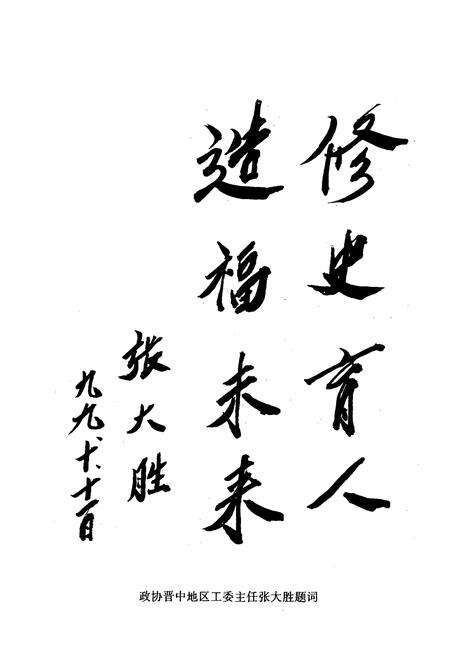 修史育人
造福未来
张大胜
九九、十、十一日
政协晋中地区工委主任张大胜题词